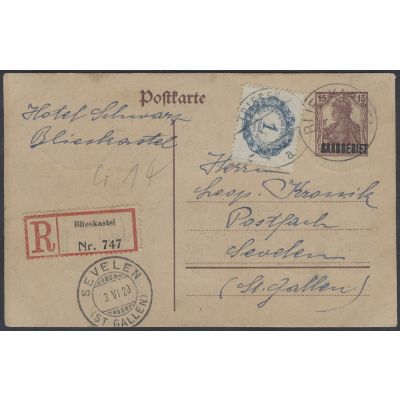 Postkarte
Hotel Schwarz
Blieskastel
Cr 14
1
15 15
SAARGEBIET
a
Herrn
Leop. Kronik
Postfach
Sevelen
(St. Gallen)
R
Blieskastel
Nr. 747
SEVELEN
3.VI.20
(ST GALLEN)